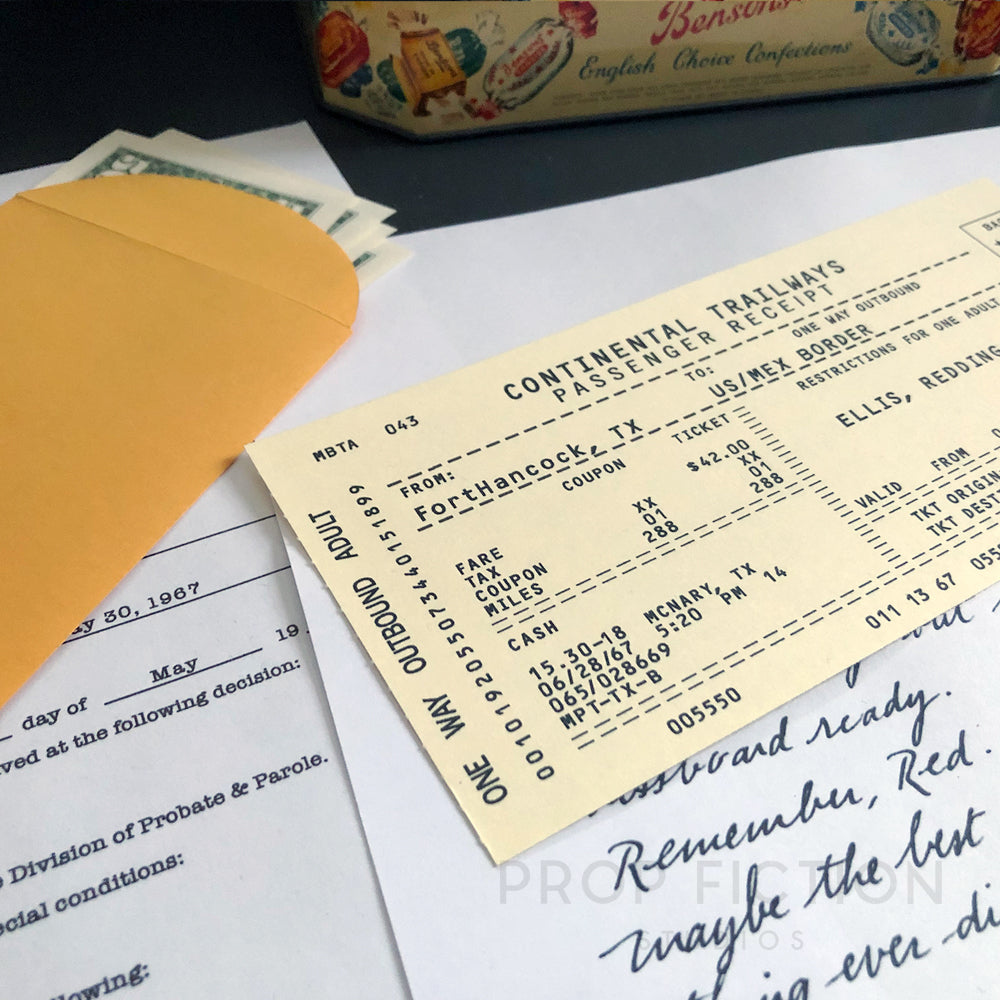 Bensons
English Choice Confections
5
MBTA 043
CONTINENTAL TRAILWAYS
PASSENGER RECEIPT
ONE WAY OUTBOUND
FROM:
TO:
FortHancock, TX
US/MEX BORDER
RESTRICTIONS FOR ONE ADULT
ELLIS, REDDING
COUPON TICKET
FARE $42.00
TAX XX XX
COUPON 01 01
MILES 288 288
VALID FROM
TKT ORIGIN
TKT DEST
CASH
15.30-18 MCNARY, TX
06/28/67 5:20 PM 14
065/028669
MPT-TX-B
005550
011 13 67
ONE WAY OUTBOUND ADULT
0010192055073440151899
ay 30, 1967
day of May 19
ved at the following decision:
Division of Probate & Parole.
ecial conditions:
lowing:
ssboard ready.
Remember, Red.
maybe the best
ng ever di
PROP FICTION
STUDIOS